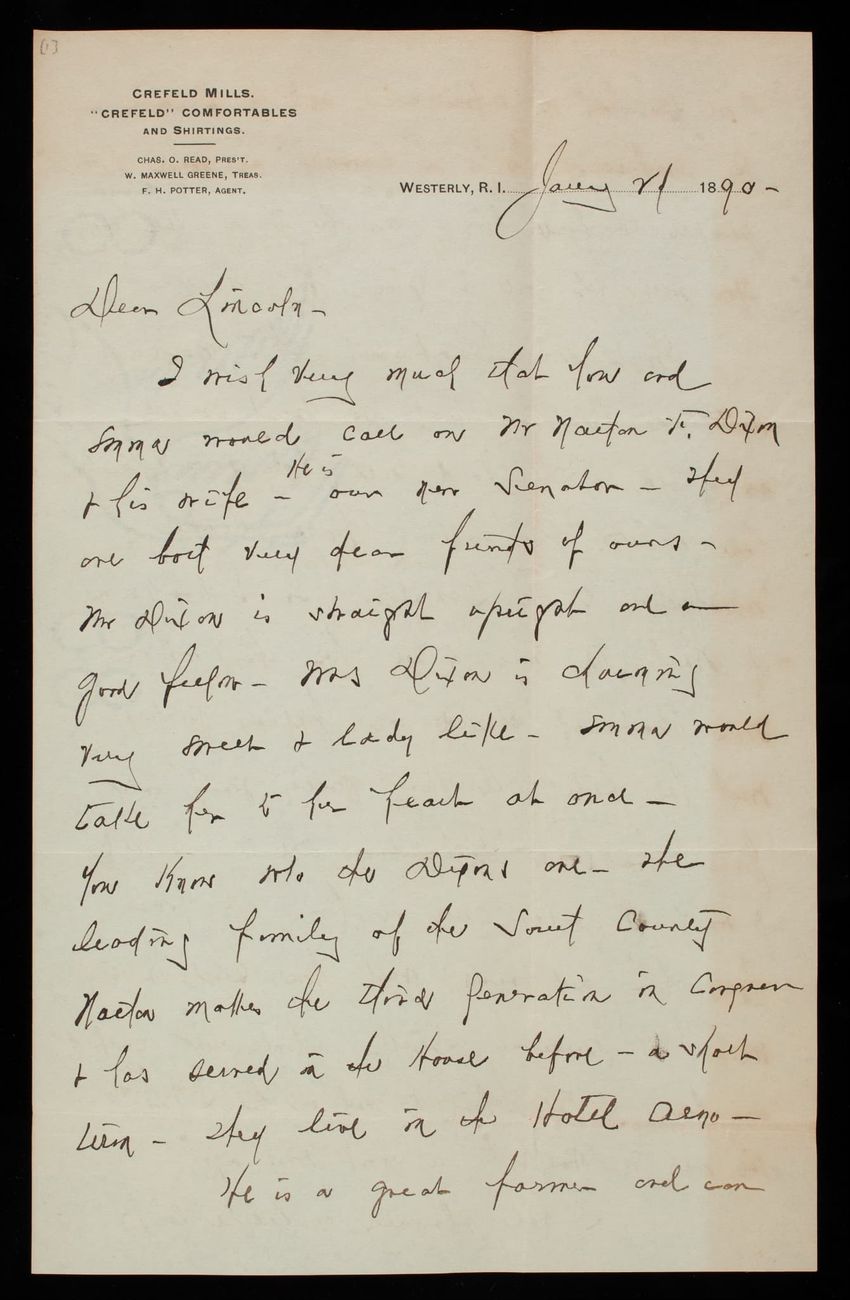 (1)
CREFELD MILLS.
"CREFELD" COMFORTABLES
AND SHIRTINGS.
CHAS. O. READ, PRES'T.
W. MAXWELL GREENE, TREAS.
F. H. POTTER, AGENT.
WESTERLY, R. I. Jany 21 1890-
Dear Lincoln -
I wish very much that you and
Emma would call on Mr Nathan F. Dixon
& his wife - He is our new Senator - They
are both very dear friends of ours -
Mr Dixon is straight upright and a
good fellow - Mrs Dixon is charming
very sweet & lady like - Emma would
take her to her heart at once -
You know who the Dixons are - the
leading family of the South County
Nathan makes the third generation in Congress
& has served in the House before - a short
term - They live in the Hotel Arno -
He is a great farmer and can